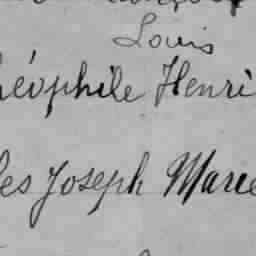 Louis
héophile Henri
les Joseph Marie